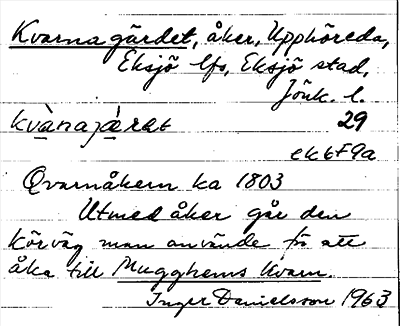 Kvarnagärdet, åker, Upphöreda,
Eksjö lfs, Eksjö stad,
Jönk. l.
29
ek 6F9a
Qvarnåkern ka 1803
Utmed åker går den
körväg man använde för att
åka till Mugghems Kvarn.
Inger Danielsson 1963